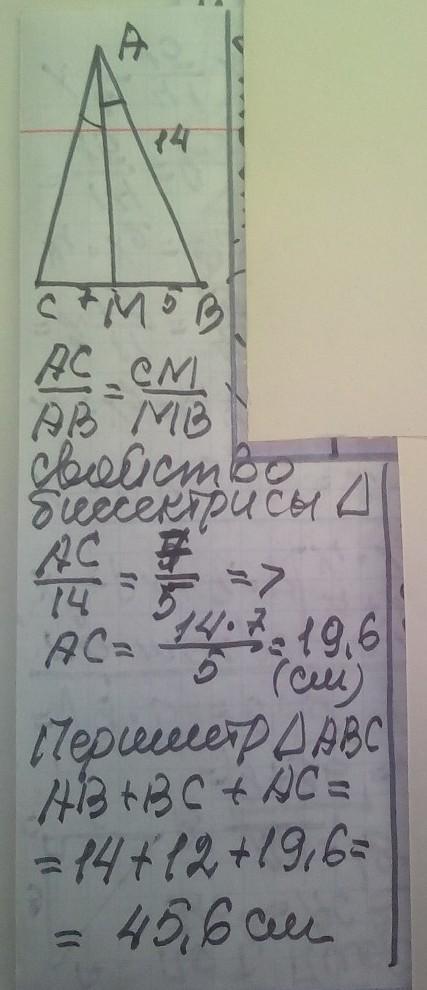 A
14
C 7 M 5 B
AC/AB = CM/MB
свойство
биссектрисы Δ
AC/14 = 7/5 =>
AC = 14·7/5 = 19,6
(см)
Периметр ΔABC
AB + BC + AC =
= 14 + 12 + 19,6 =
= 45,6 см